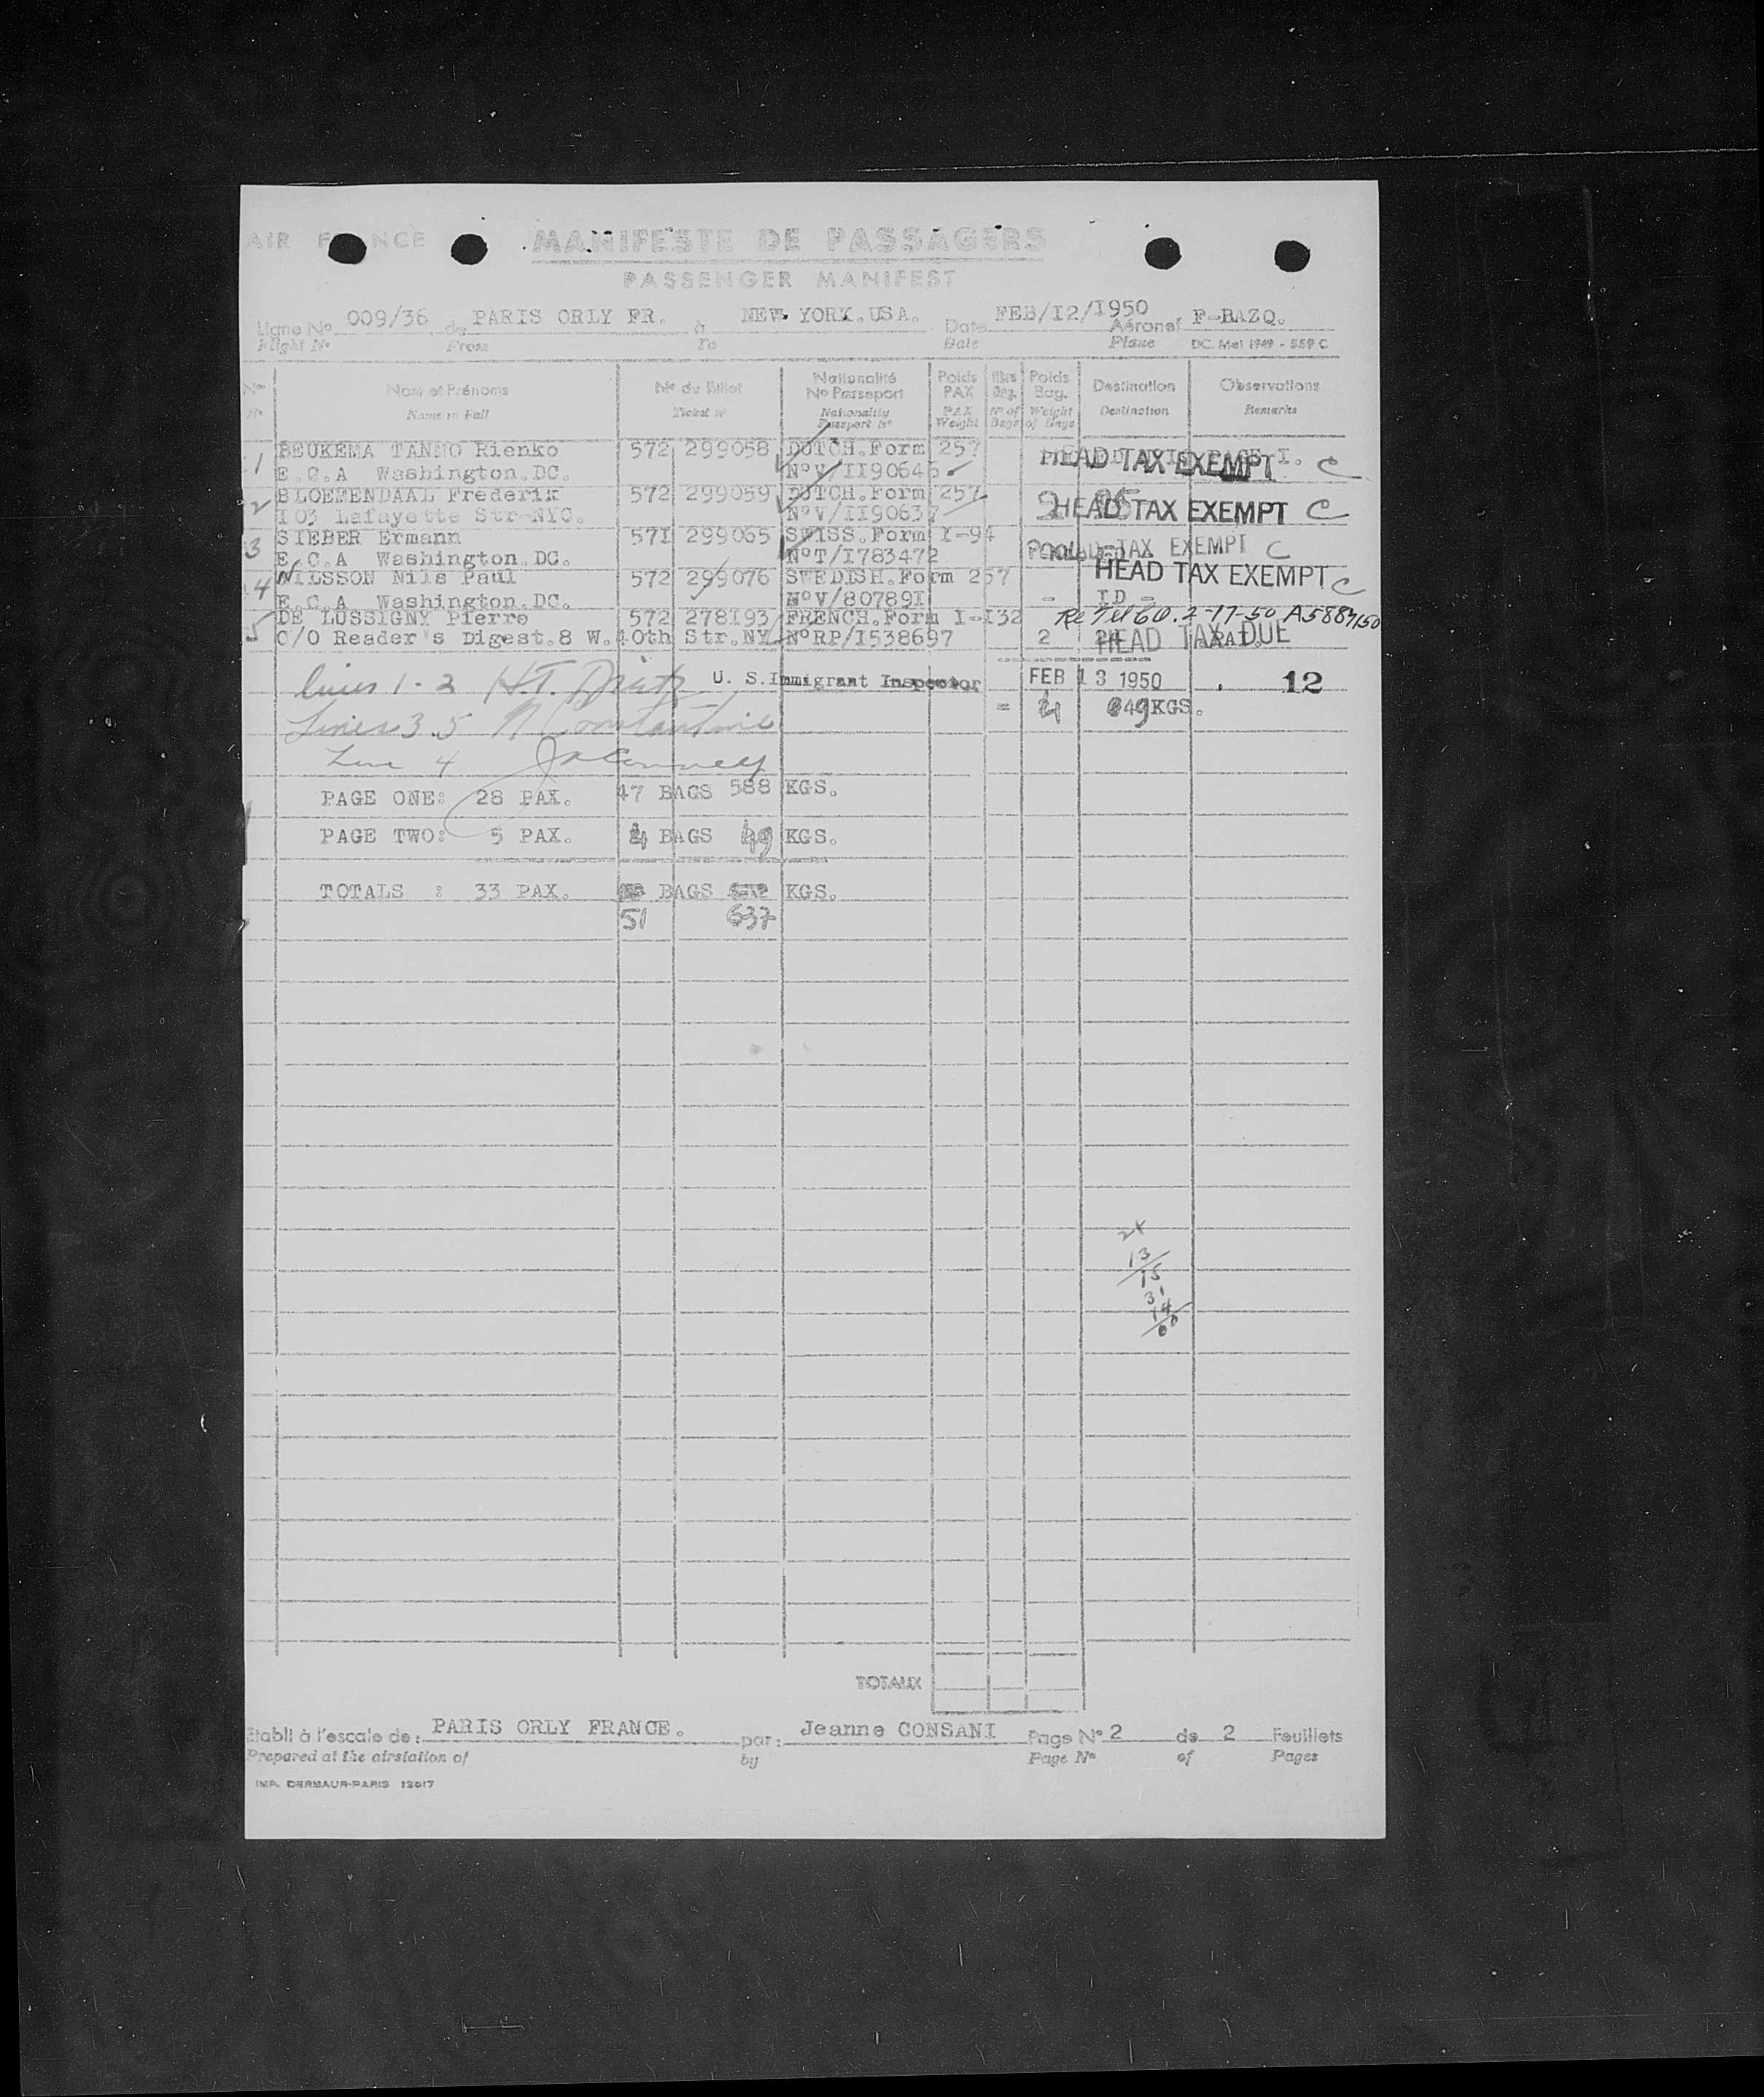 AIR FRANCE MANIFESTE DE PASSAGERS
PASSENGER MANIFEST
Ligne No 009/36 de PARIS ORLY FR. à NEW YORK.USA. Date FEB/I2/I950 Aéronef F-BAZQ.
Flight No From To Date Plane DC. Mel 1949 - 559 C
Nos Nom et Prénoms No du Billet Nationalité No Passeport Poids PAX Poids Bag. Destination Observations
No Name in Full Ticket No Nationality Passport No PAX Weight No of Bags Weight of Bags Destination Remarks
1 BEUKEMA TANNO Rienko 572 299058 DUTCH.Form 257
E.C.A Washington.DC. NoV/II90646 HEAD TAX EXEMPT C
2 BLOEMENDAAL Frederik 572 299059 DUTCH.Form 257
I03 Lafayette Str-NYC. NoV/II90637 HEAD TAX EXEMPT C
3 SIEBER Ermann 57I 299065 SWISS.Form I-94
E.C.A Washington.DC. NoT/I783472 HEAD TAX EXEMPT C
4 NILSSON Nils Paul 572 299076 SWEDISH.Form 257 HEAD TAX EXEMPT C
E.C.A Washington.DC. NoV/80789I - ID -
5 DE LUSSIGNY Pierre 572 278I93 FRENCH.Form I-I32 2-17-50
C/O Reader's Digest.8 W.40th Str.NY NoRP/I538697 2 HEAD TAX DUE
lines 1-2 U. S. Immigrant Inspector FEB 13 1950 12
= 4 49 KGS.
Lines 3.5 Constantine
Line 4
PAGE ONE: 28 PAX. 47 BAGS 588 KGS.
PAGE TWO: 5 PAX. 4 BAGS 49 KGS.
TOTALS : 33 PAX. BAGS KGS.
51 637
24
13
15
31
14
00
TOTAUX
Etabli à l'escale de: PARIS ORLY FRANCE. par: Jeanne CONSANI Page No 2 de 2 Feuillets
Prepared at the airstation of by Page No of Pages
IMP. DERMAUR-PARIS 12017